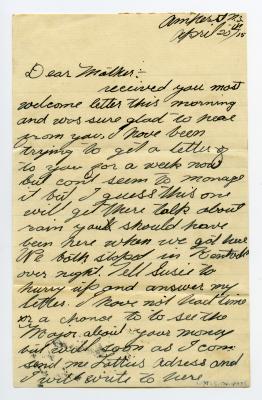 Amherst N.S.
April 20th/15
Dear Mother:-
received you most
welcome letter this morning
and was sure glad to hear
from you, I have been
trying to get a letter of
to you for a week now
but can't seem to manage
it but I guess this one
will get there talk about
rain you should have
been here when we got here
We both stoped in
over night. Tell Susie to
hurry up and answer my
letter. I have not had time
or a chance to to see the
Major about your money
but will soon as I can
send me Lottie's adress and
I will write to her